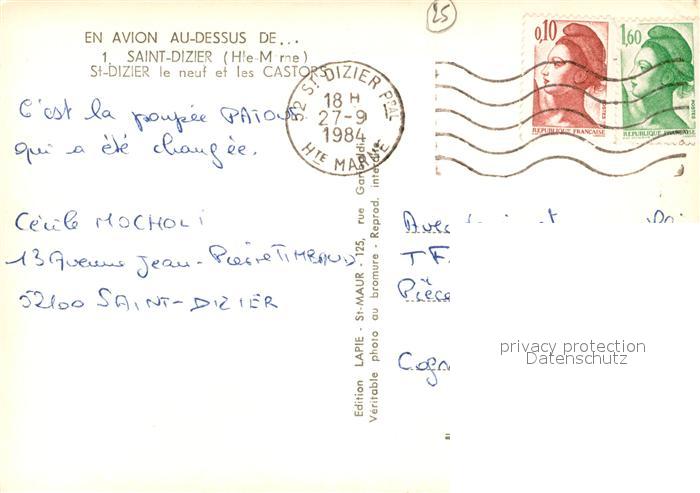 25
EN AVION AU-DESSUS DE...
1. SAINT-DIZIER (Hte-Marne)
St-DIZIER le neuf et les CASTORS
C'est la poupée PATOUF
qui a été changée.
Cécile MOCHOLI
13 Avenue Jean-Pierre TIMBAUD.
52100 SAINT-DIZIER
52 ST DIZIER PPAL
18 H
27-9
1984
HTE MARNE
0,10
REPUBLIQUE FRANÇAISE
1,60
REPUBLIQUE FRANÇAISE
Edition LAPIE - St-MAUR - 125, rue Garibaldi
Véritable photo au bromure - Reprod. interdite
TF
Pièce
Cogn
privacy protection
Datenschutz